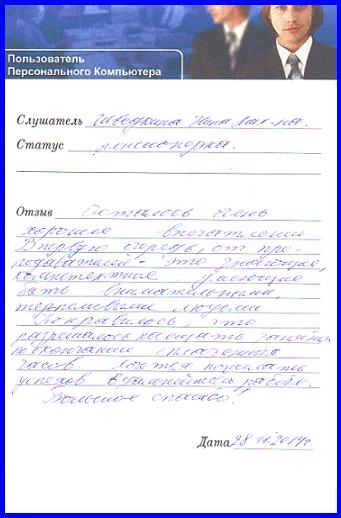 Пользователь
Персонального Компьютера
Слушатель Нина
Статус пенсионерка.
Отзыв Осталось очень
хорошее впечатление
В первую очередь, от пре-
подавателей - это знающие,
компетентные, умеющие
быть внимательными,
терпеливыми людьми
Понравилось, что
разрешалось посещать занятия
по окончании оплаченных
часов. Хочется пожелать
успехов в дальнейшей работе.
Большое спасибо!
Дата 28.11.2014г.